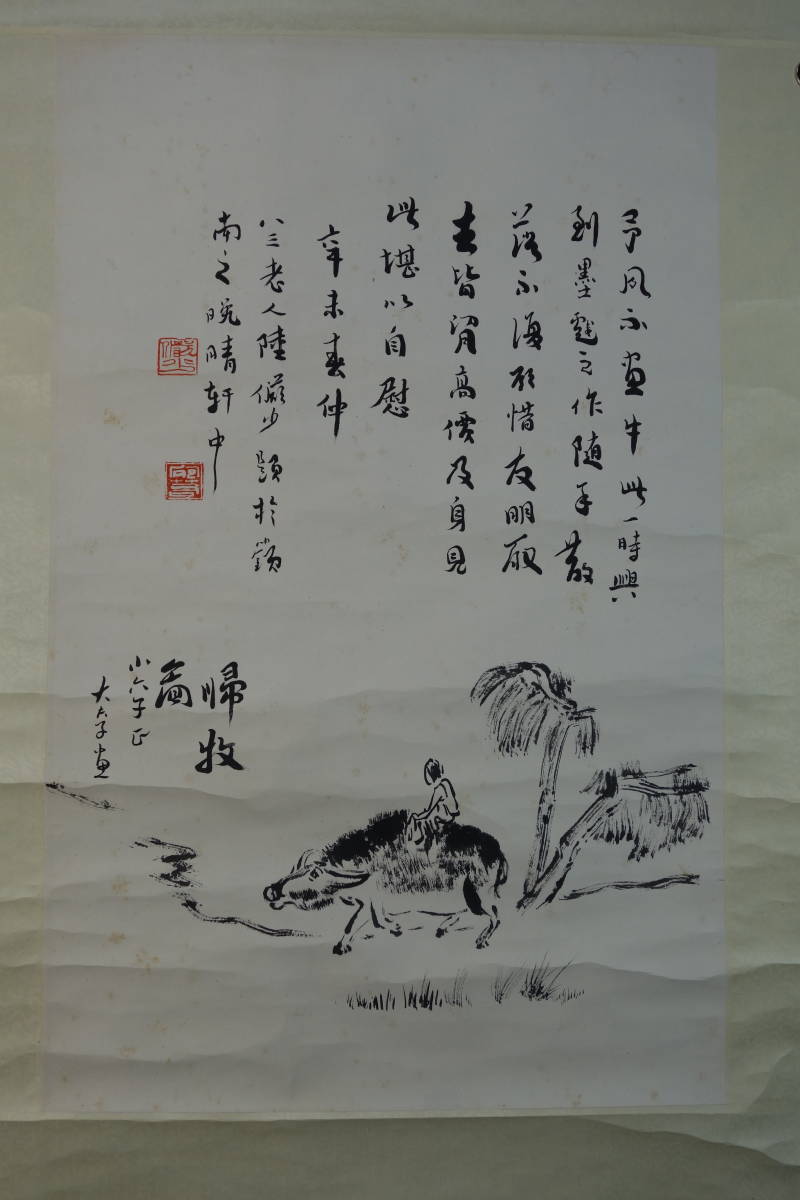 予夙不画牛此一時興
到墨戲之作隨手散
落不復顧惜友朋取
去皆貿高價及身見
此堪以自慰
辛未春仲
八三老人陸儼少題於嶺
南之晚晴軒中
歸牧
圖
小六子正
大六子画